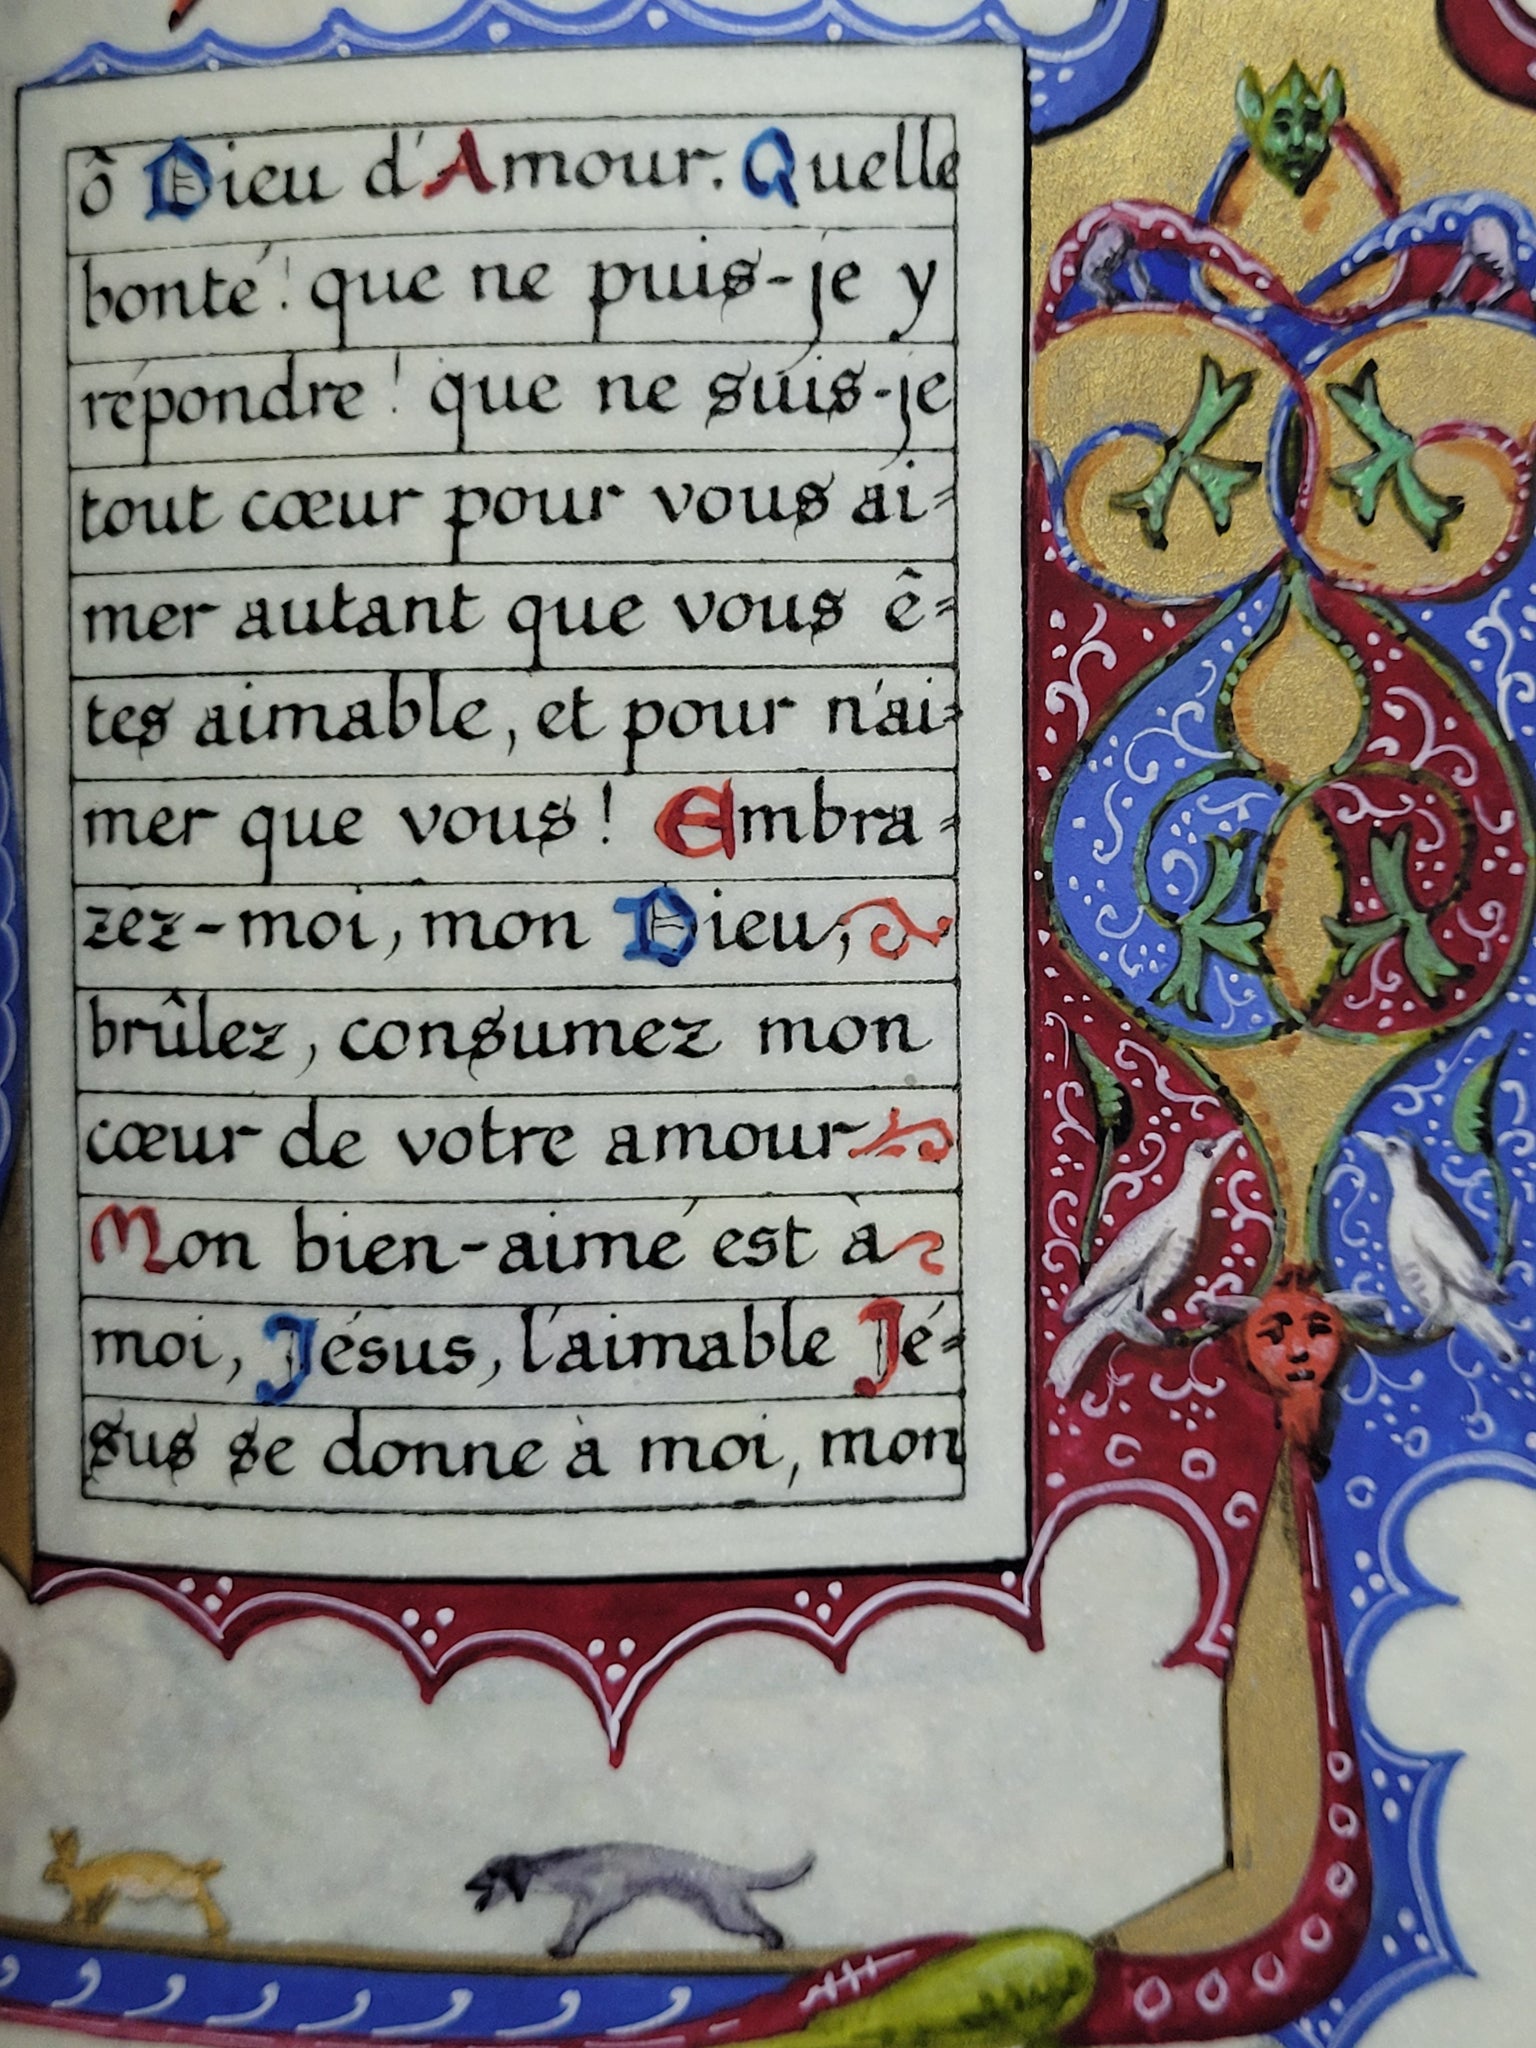 ô Dieu d'Amour. Quelle
bonté! que ne puis-je y
répondre! que ne suis-je
tout cœur pour vous ai=
mer autant que vous ê=
tes aimable, et pour n'ai=
mer que vous! Embra=
zez-moi, mon Dieu;
brûlez, consumez mon
cœur de votre amour
Mon bien-aimé est à
moi, Jésus, l'aimable Jé=
sus se donne à moi, mon